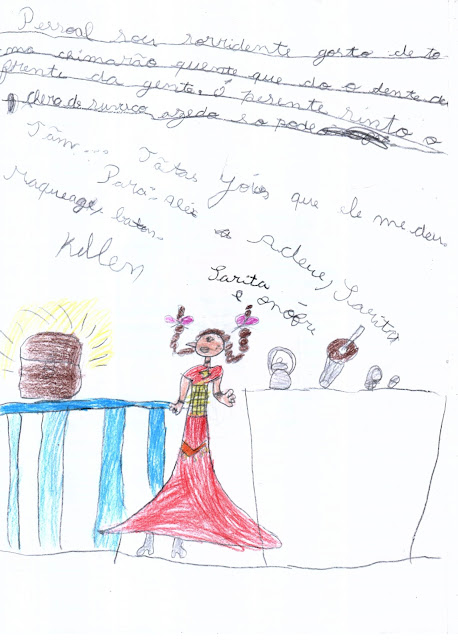 Pessoal sou sorridente gosto de to
ma chimarão quente que do o dente de
frente da gente, ó perente sinto o
chera de suvaco azedo so pode
Tãm... Tãtas yóias que ele me deu.
Para: alei a Adeue, Sarita
Maqueages batons
Kellen
Sarita
e onófri